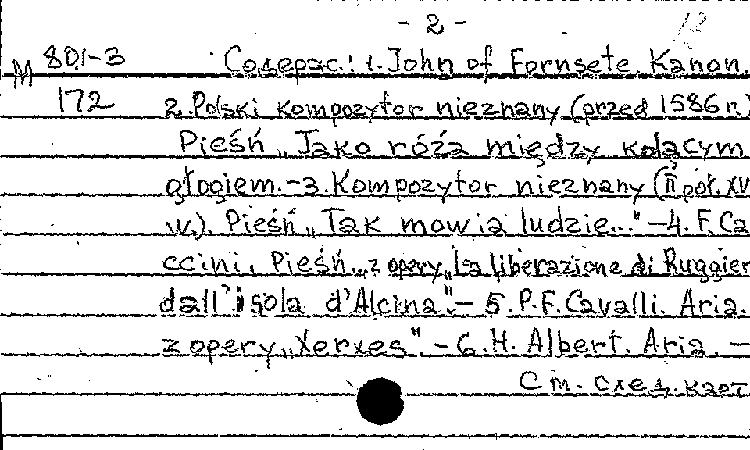 - 2 -
М 801-3 Содерж.: 1. John of Fornsete. Kanon.
172 2. Polski kompozytor nieznany (przed 1586 r.)
Pieśń „Jako róża między kolącym
głogiem. - 3. Kompozytor nieznany (II poł. XV
w.). Pieśń „Tak mówią ludzie..." - 4. F. Ca
ccini. Pieśń z opery „La liberazione di Ruggier
dall'isola d'Alcina". - 5. P.F. Cavalli. Aria.
z opery „Xerxes". - 6. H. Albert. Aria. -
См. след. карт